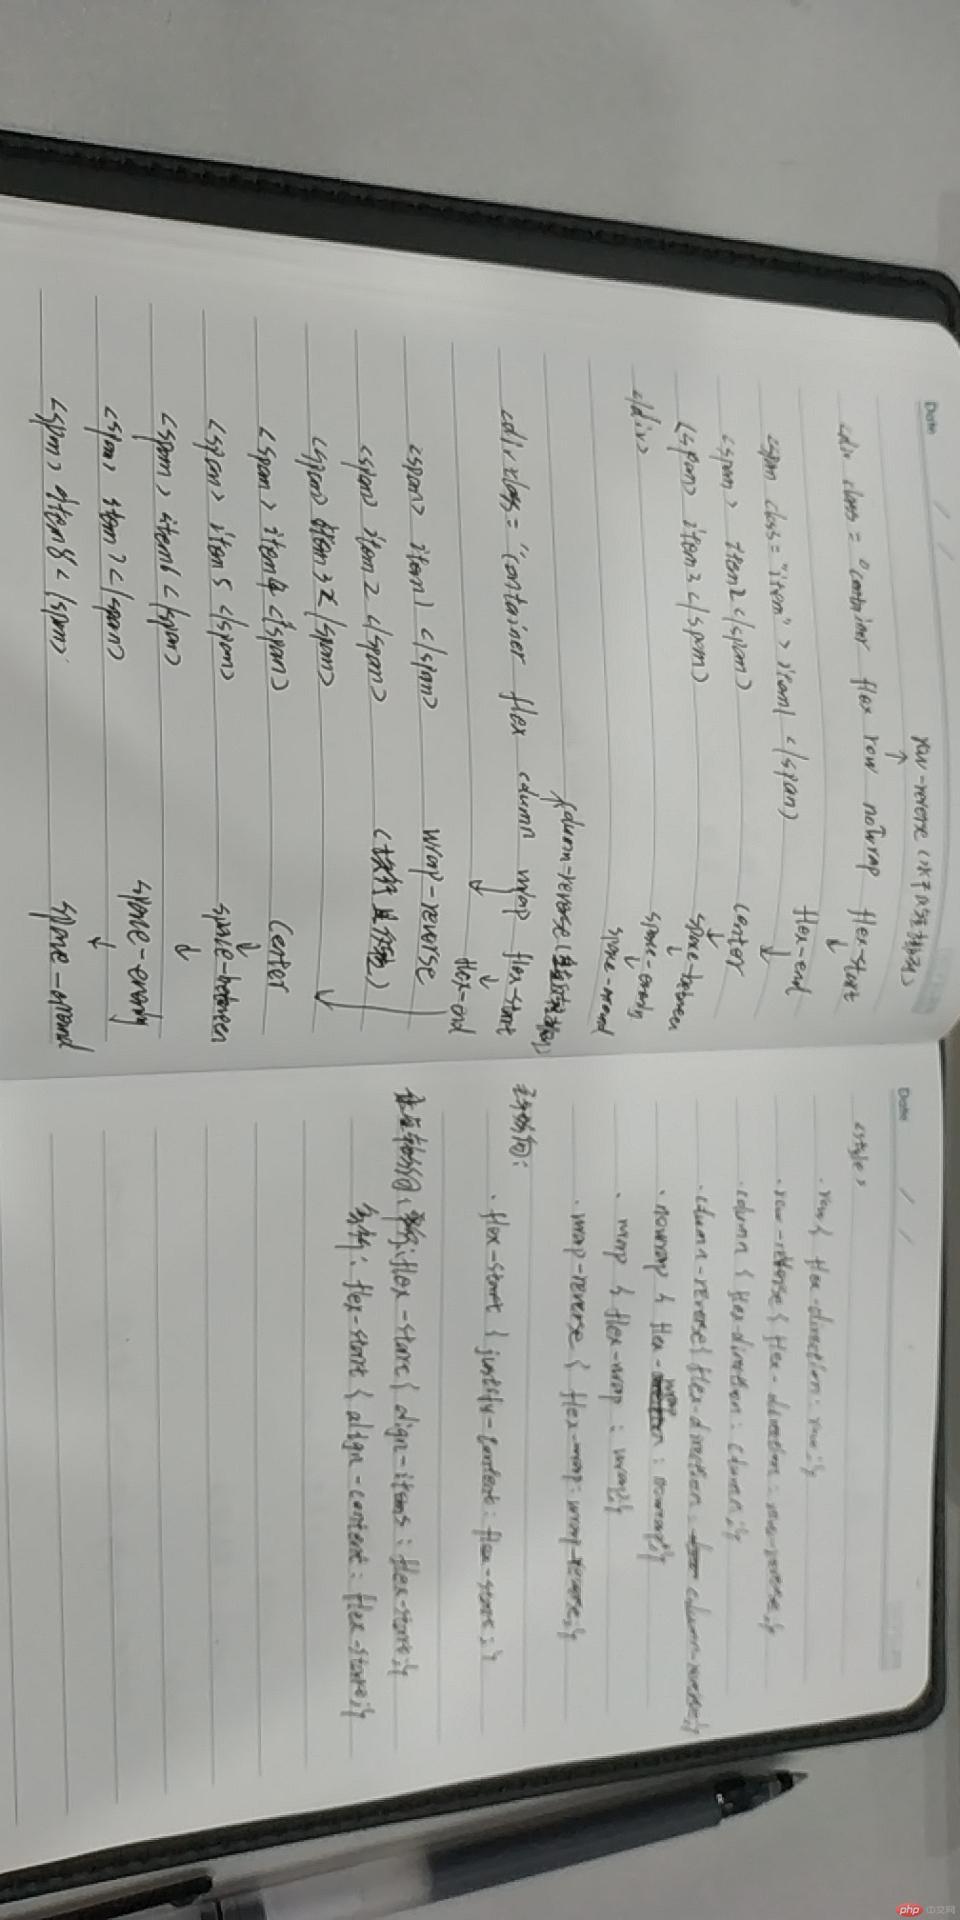 Date / /
row-reverse (水平反转排列)
↑
<div class="container flex row nowrap flex-start
↓
<span class="item">item1</span> flex-end
↓
<span>item2</span> center
↓
<span>item3</span> space-between
↓
</div> space-evenly
↓
space-around
column-reverse
<div class="container flex column wrap flex-start
↓
flex-end
<span>item1</span> wrap-reverse
<span>item2</span>
<span>item3</span>
<span>item4</span> center
↓
<span>item5</span> space-between
↓
<span>item6</span> space-evenly
↓
<span>item7</span>
<span>item8</span> space-around
Date / /
<style>
.row{flex-direction:row;}
.row-reverse{flex-direction:row-reverse;}
.column{flex-direction:column;}
.column-reverse{flex-direction:column-reverse;}
.nowrap{flex-wrap:nowrap;}
.wrap{flex-wrap:wrap;}
.wrap-reverse{flex-wrap:wrap-reverse;}
主轴方向:
.flex-start{justify-content:flex-start;}
flex-start{align-items:flex-start;}
多行:flex-start{align-content:flex-start;}
php 中文网